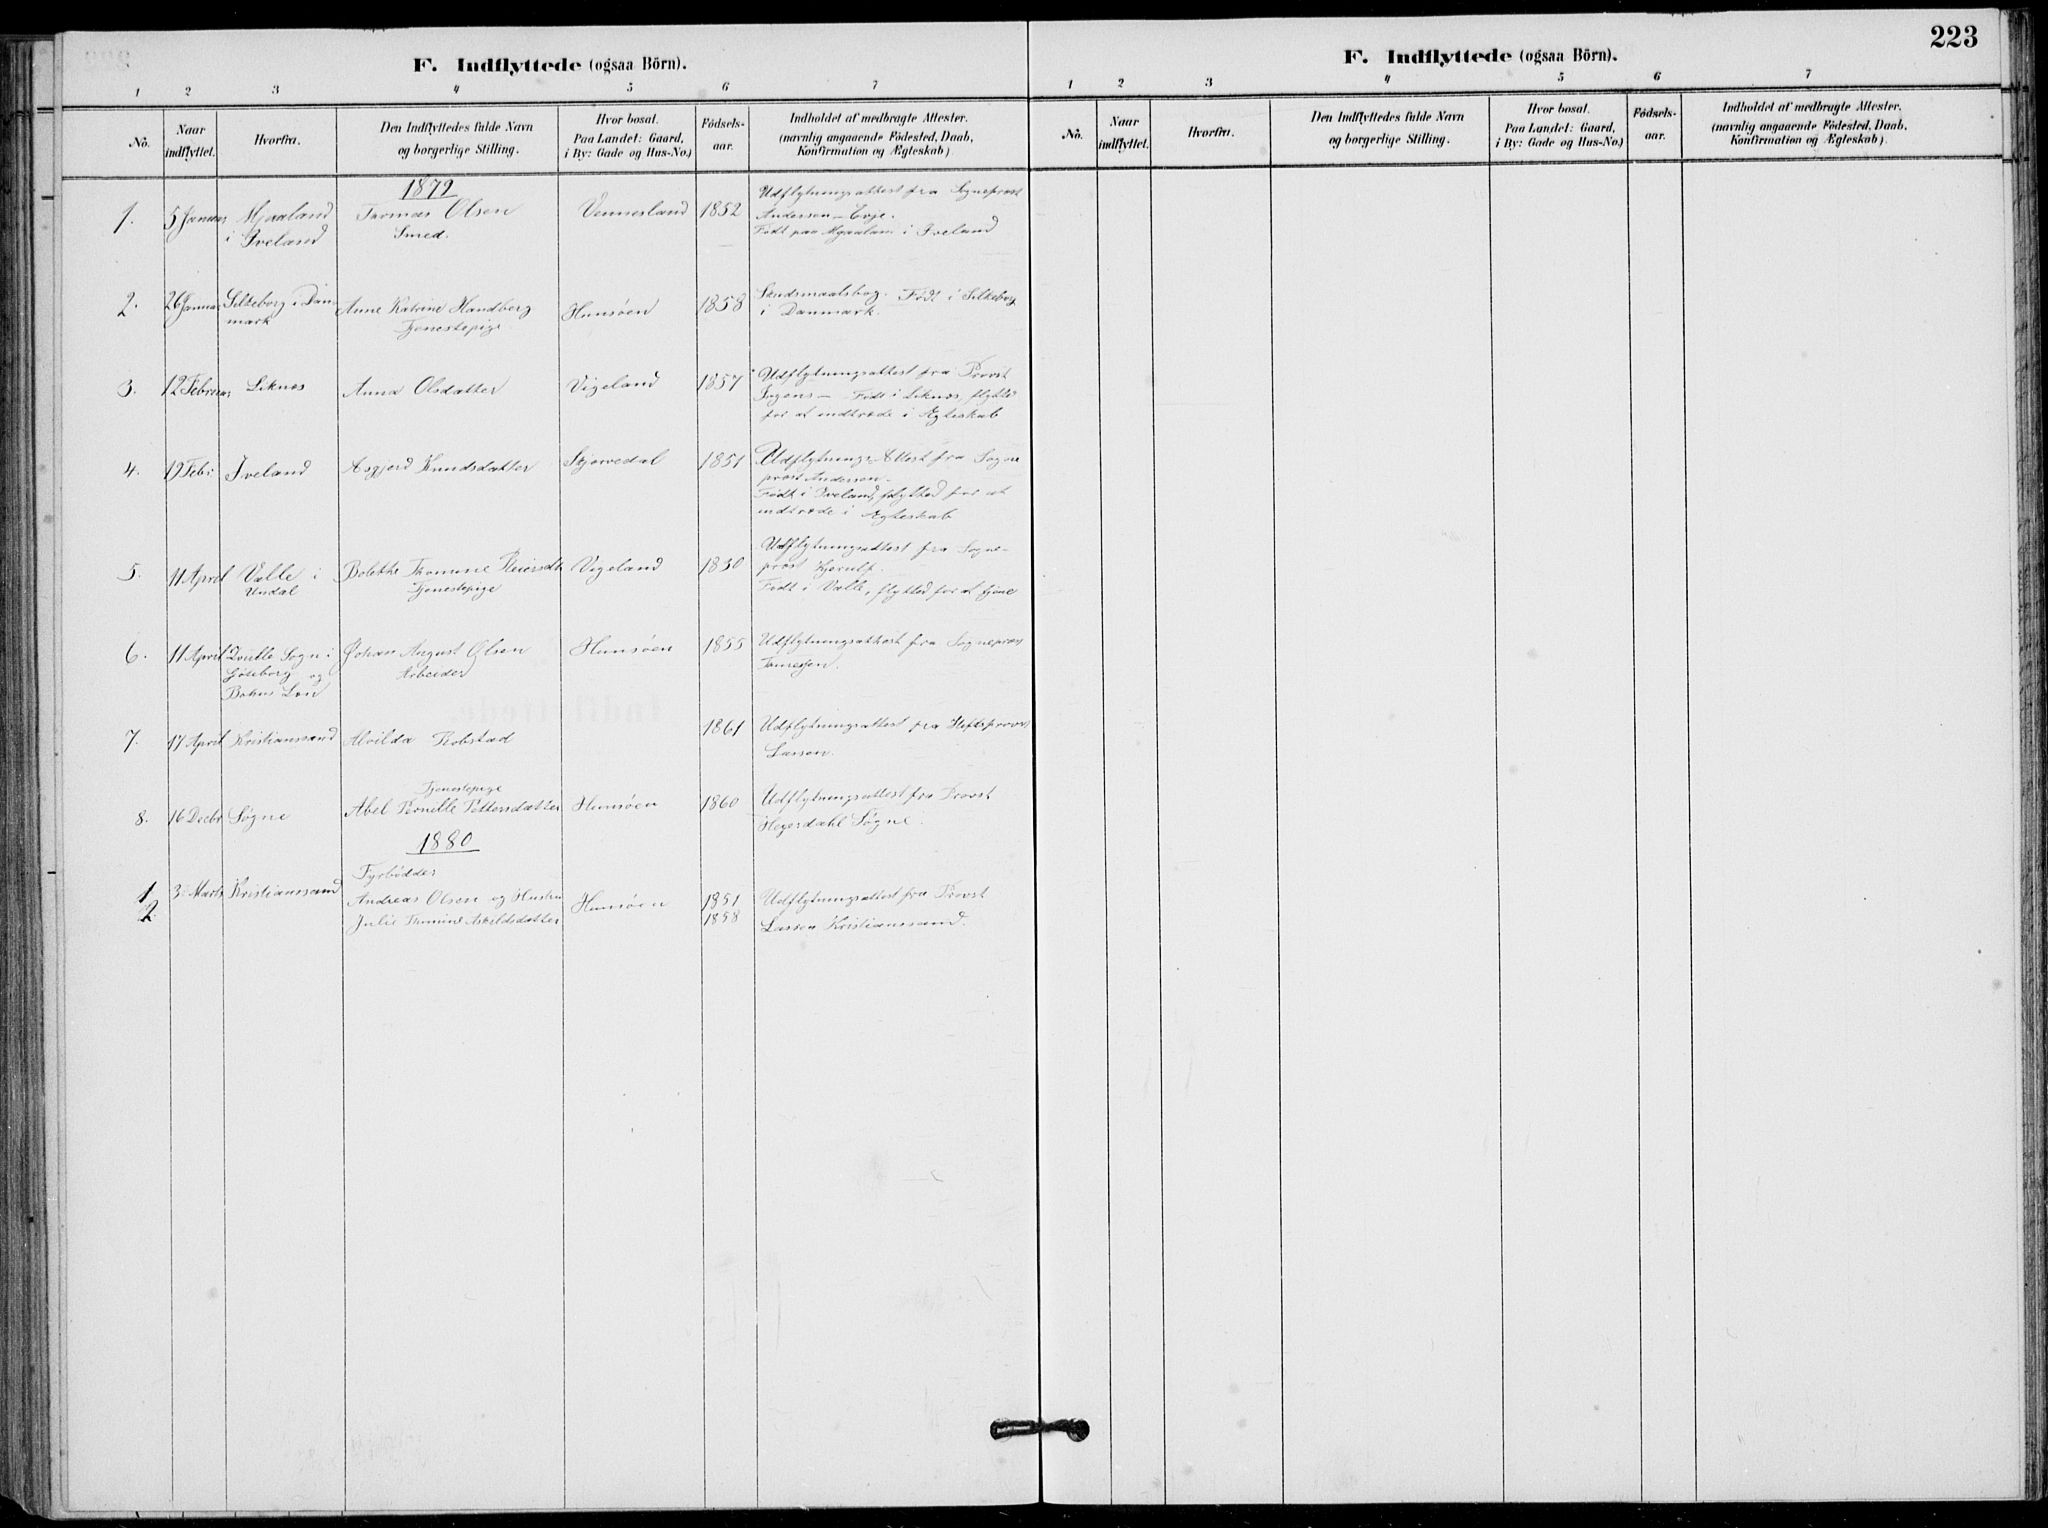 F. Indflyttede (ogsaa Börn).
1 2 3 4 5 6 7
No.
Naar indflyttet.
Hvorfra.
Den Indflyttedes fulde Navn
og borgerlige Stilling.
Hvor bosat.
Paa Landet: Gaard,
i By: Gade og Hus-No.)
Födsels-
aar.
Indholdet af medbragte Attester.
(navnlig angaaende Födested, Daab,
Konfirmation og Ægteskab).
1879
1. 5 Januar Mjaaland i Iveland Thomas Olsen Smed. Vennesland 1852 Udflytningsattest fra Sogneprest
Andersen – Evje.
Født paa Mjaaland i Iveland
2. 26 Januar Silkeborg i Danmark Anne Katrine Handberg Tjenestepige Hunsøen 1858 Skudsmaalsbog. Født i Silkeborg
i Danmark.
3. 12 Februar Liknes Anna Olsdatter Vigeland 1857 Udflytningsattest fra Provst
– Født i Liknes, flytted
for at indtræde i Ægteskab
4. 19 Febr Iveland Asgjerd Knudsdatter Stjervedal 1851 Udflytnings-Attest fra Sogne
prest Andersen.
Født i Iveland, flytted for at
indtræde i Ægteskab
5. 11 April Valle i Undal Bolethe Thomine Reiersdt Tjenestepige Vigeland 1830 Udflytningsattest fra Sogne-
prest Kjerulf.
Født i Valle, flytted for at tjene
6. 11 April Qville Sogn i Göteborg og Bohus Len Johan August Olsen Arbeider Hunsøen 1855 Udflytningsattest fra Sogneprest
7. 17 April Kristianssand Alvilda Robstad 1861 Udflytningsattest fra Stiftsprovst
Lassen.
8. 16 Decbr Søgne Tjenestepige Abel Pernille Pettersdatter Hunsøen 1860 Udflytningsattest fra Provst
Heyerdahl Søgne.
1880
1 2. 3 Marts Kristianssand Fyrbødder
Andreas Olsen og Hustru
Julie Thomine Askeldsdatter Hunsøen 1851
1858 Udflytningsattest fra Provst
Lassen Kristianssand.
223
F. Indflyttede (ogsaa Börn).
1 2 3 4 5 6 7
No.
Naar indflyttet.
Hvorfra.
Den Indflyttedes fulde Navn
og borgerlige Stilling.
Hvor bosat.
Paa Landet: Gaard,
i By: Gade og Hus-No.)
Födsels-
aar.
Indholdet af medbragte Attester.
(navnlig angaaende Födested, Daab,
Konfirmation og Ægteskab).